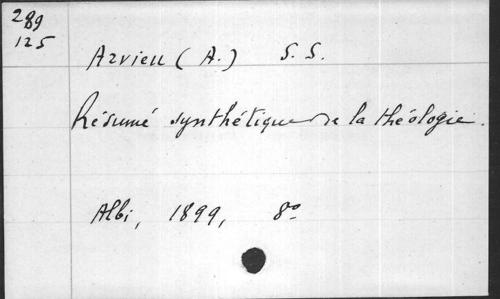 289
125
Azvieu (A.) S. S.
Résumé synthétique de la théologie.
Albi, 1899, 8º